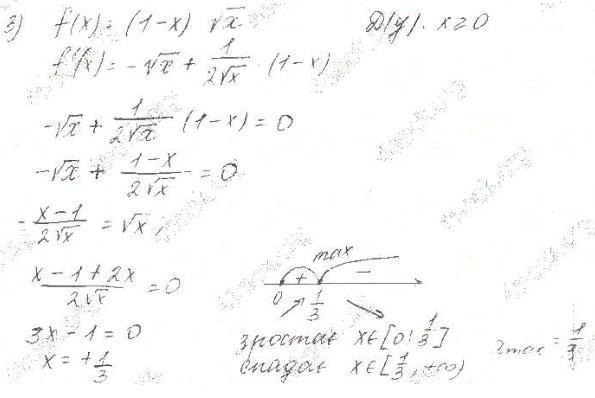 3) f(x) = (1-x) √x. D(y). x ≥ 0
f'(x) = -√x + 1/(2√x) · (1-x)
-√x + 1/(2√x) (1-x) = 0
-√x + (1-x)/(2√x) = 0
-(x-1)/(2√x) = √x;
(x-1+2x)/(2√x) = 0
3x - 1 = 0
x = +1/3
max
+ -
0 1/3
зростає x∈[0; 1/3]
спадає x∈[1/3, +∞)
xmax = 1/3